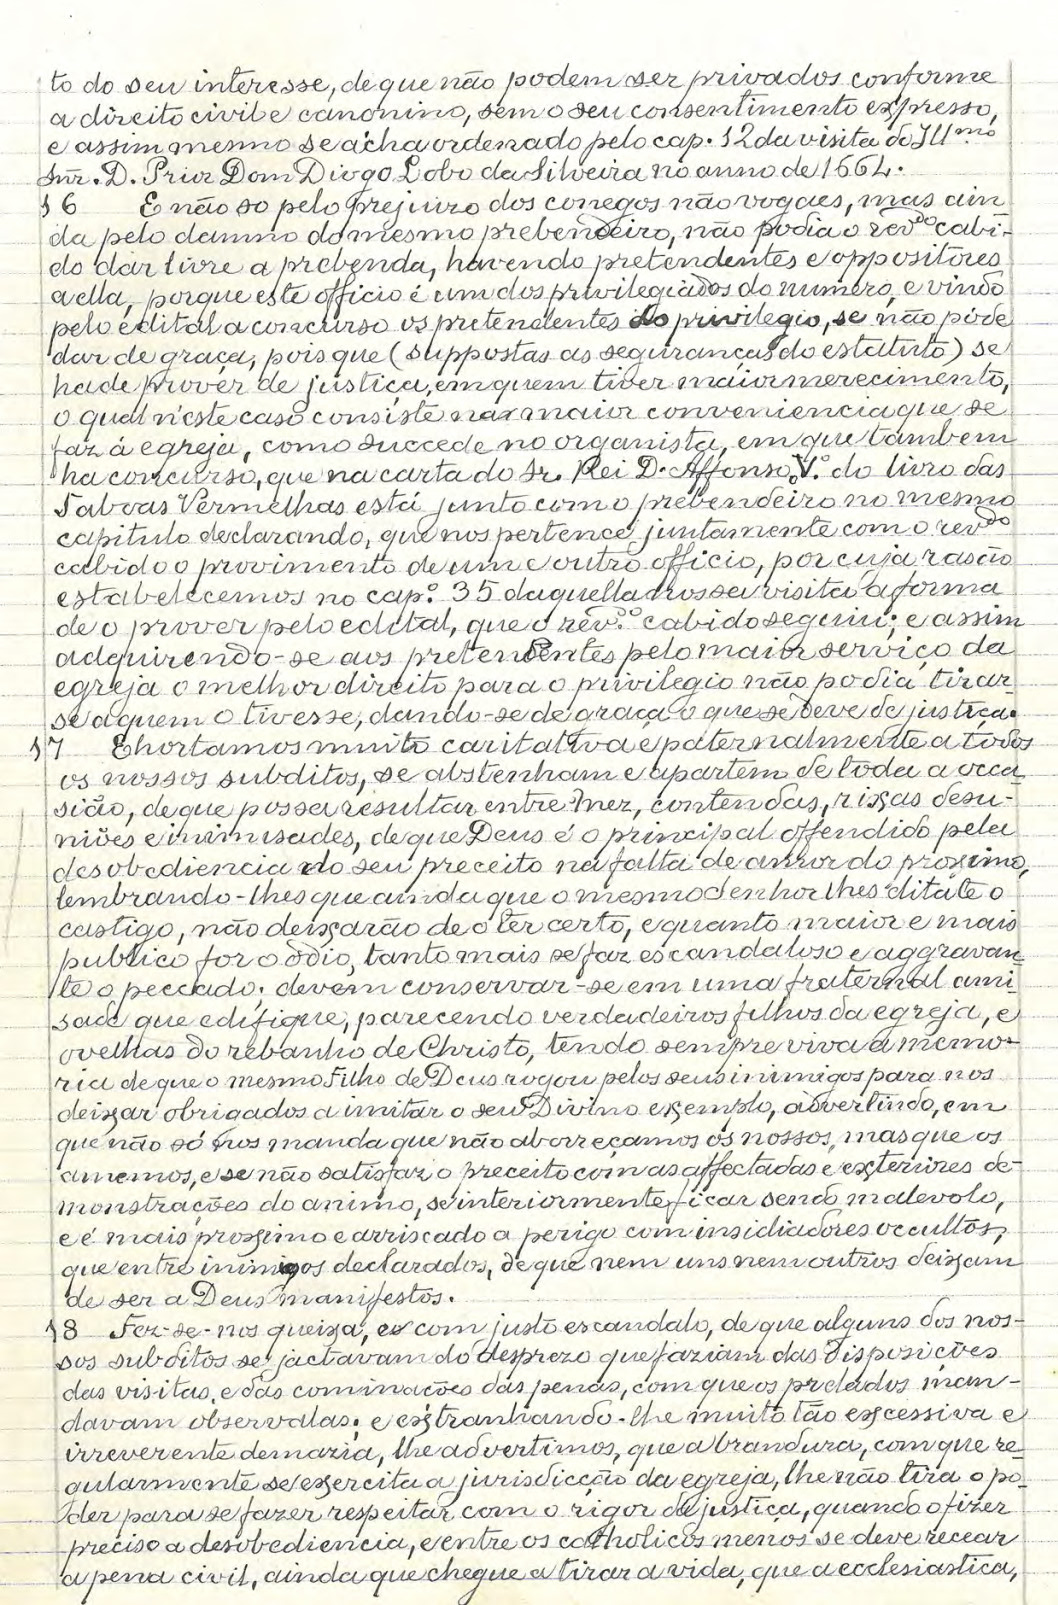 to do seu interesse, de que não podem ser privados conforme
a direito civil e canonino, sem o seu consentimento expresso,
e assim mesmo se ácha ordenado pelo cap. 12 da visita do Ill.mo
Snr. D. Prior Dom Diogo Lobo da Silveira no anno de 1664.
§6 E não so pelo prejuizo dos conegos não vogaes, mas ain-
da pelo damno do mesmo prebendeiro, não podia o rev.do cabi-
do dar livre a prebenda, havendo pretendentes e oppositores
a ella, porque este officio é um dos privilegiados do numero, e vindo
pelo edital a concurso os pretendentes do privilegio, se não póde
dar de graça, pois que (suppostas as seguranças do estatuto) se
hade prover de justiça, em quem tiver maior merecimento,
o qual n'este caso consiste na maior conveniencia que se
faz á egreja, como succede no organista, em que tambem
ha concurso, que na carta do Sr. Rei D. Affonso V.º do livro das
Taboas Vermelhas está junto com o prebendeiro no mesmo
capitulo declarando, que nos pertence juntamente com o rev.do
cabido o provimento de um e outro officio, por cuja rasão
estabelecemos no cap.º 35 daquella nossa visita a forma
de o prover pelo edital, que o rev.do cabido seguiu; e assim
adquirindo-se aos pretendentes pelo maior serviço da
egreja o melhor direito para o privilegio não podia tirar-
se a quem o tivesse, dando-se de graça o que se deve de justiça.
§7 Ehortamos muito caritativa e paternalmente a todos
os nossos subditos, se abstenham e apartem de toda a occa-
sião, de que possa resultar entre si, contendas, rixas desu-
niões e inimisades, de que Deus é o principal offendido pela
desobediencia do seu preceito na falta de amor do proximo,
lembrando-lhes que ainda que o mesmo Senhor lhes dilate o
castigo, não deixarão de o ter certo, e quanto maior e mais
publico for o ódio, tanto mais se faz escandaloso e aggravan-
te o peccado; devem conservar-se em uma fraternal ami-
sade que edifique, parecendo verdadeiros filhos da egreja, e
ovelhas do rebanho de Christo, tendo sempre viva a memo-
ria de que o mesmo Filho de Deus rogou pelos seus inimigos para nos
deixar obrigados a imitar o seu Divino exemplo, advertindo, em
que não só nos manda que não aborreçamos os nossos, mas que os
amemos, e se não satisfaz o preceito com as affectadas e exteriores de-
monstrações do animo, se interiormente ficar sendo malevolo,
e é mais proximo e arriscado a perigo com insidiadores occultos,
que entre inimigos declarados, de que nem uns nem outros deixam
de ser a Deus manifestos.
§8 Fez-se-nos queixa, e com justo escandalo, de que alguns dos nos-
sos subditos se jactavam do desprezo que faziam das disposições
das visitas, e das cominações das penas, com que os prelados man-
davam observalas; e extranhando-lhe muito tão excessiva e
irreverente demazia, lhe advertimos, que a brandura, com que re-
gularmente se exercita a jurisdicção da egreja, lhe não tira o po-
der para se fazer respeitar com o rigor de justiça, quando o fizer
preciso a desobediencia, e entre os catholicos menos se deve recear
a pena civil, ainda que chegue a tirar a vida, que a ecclesiastica,